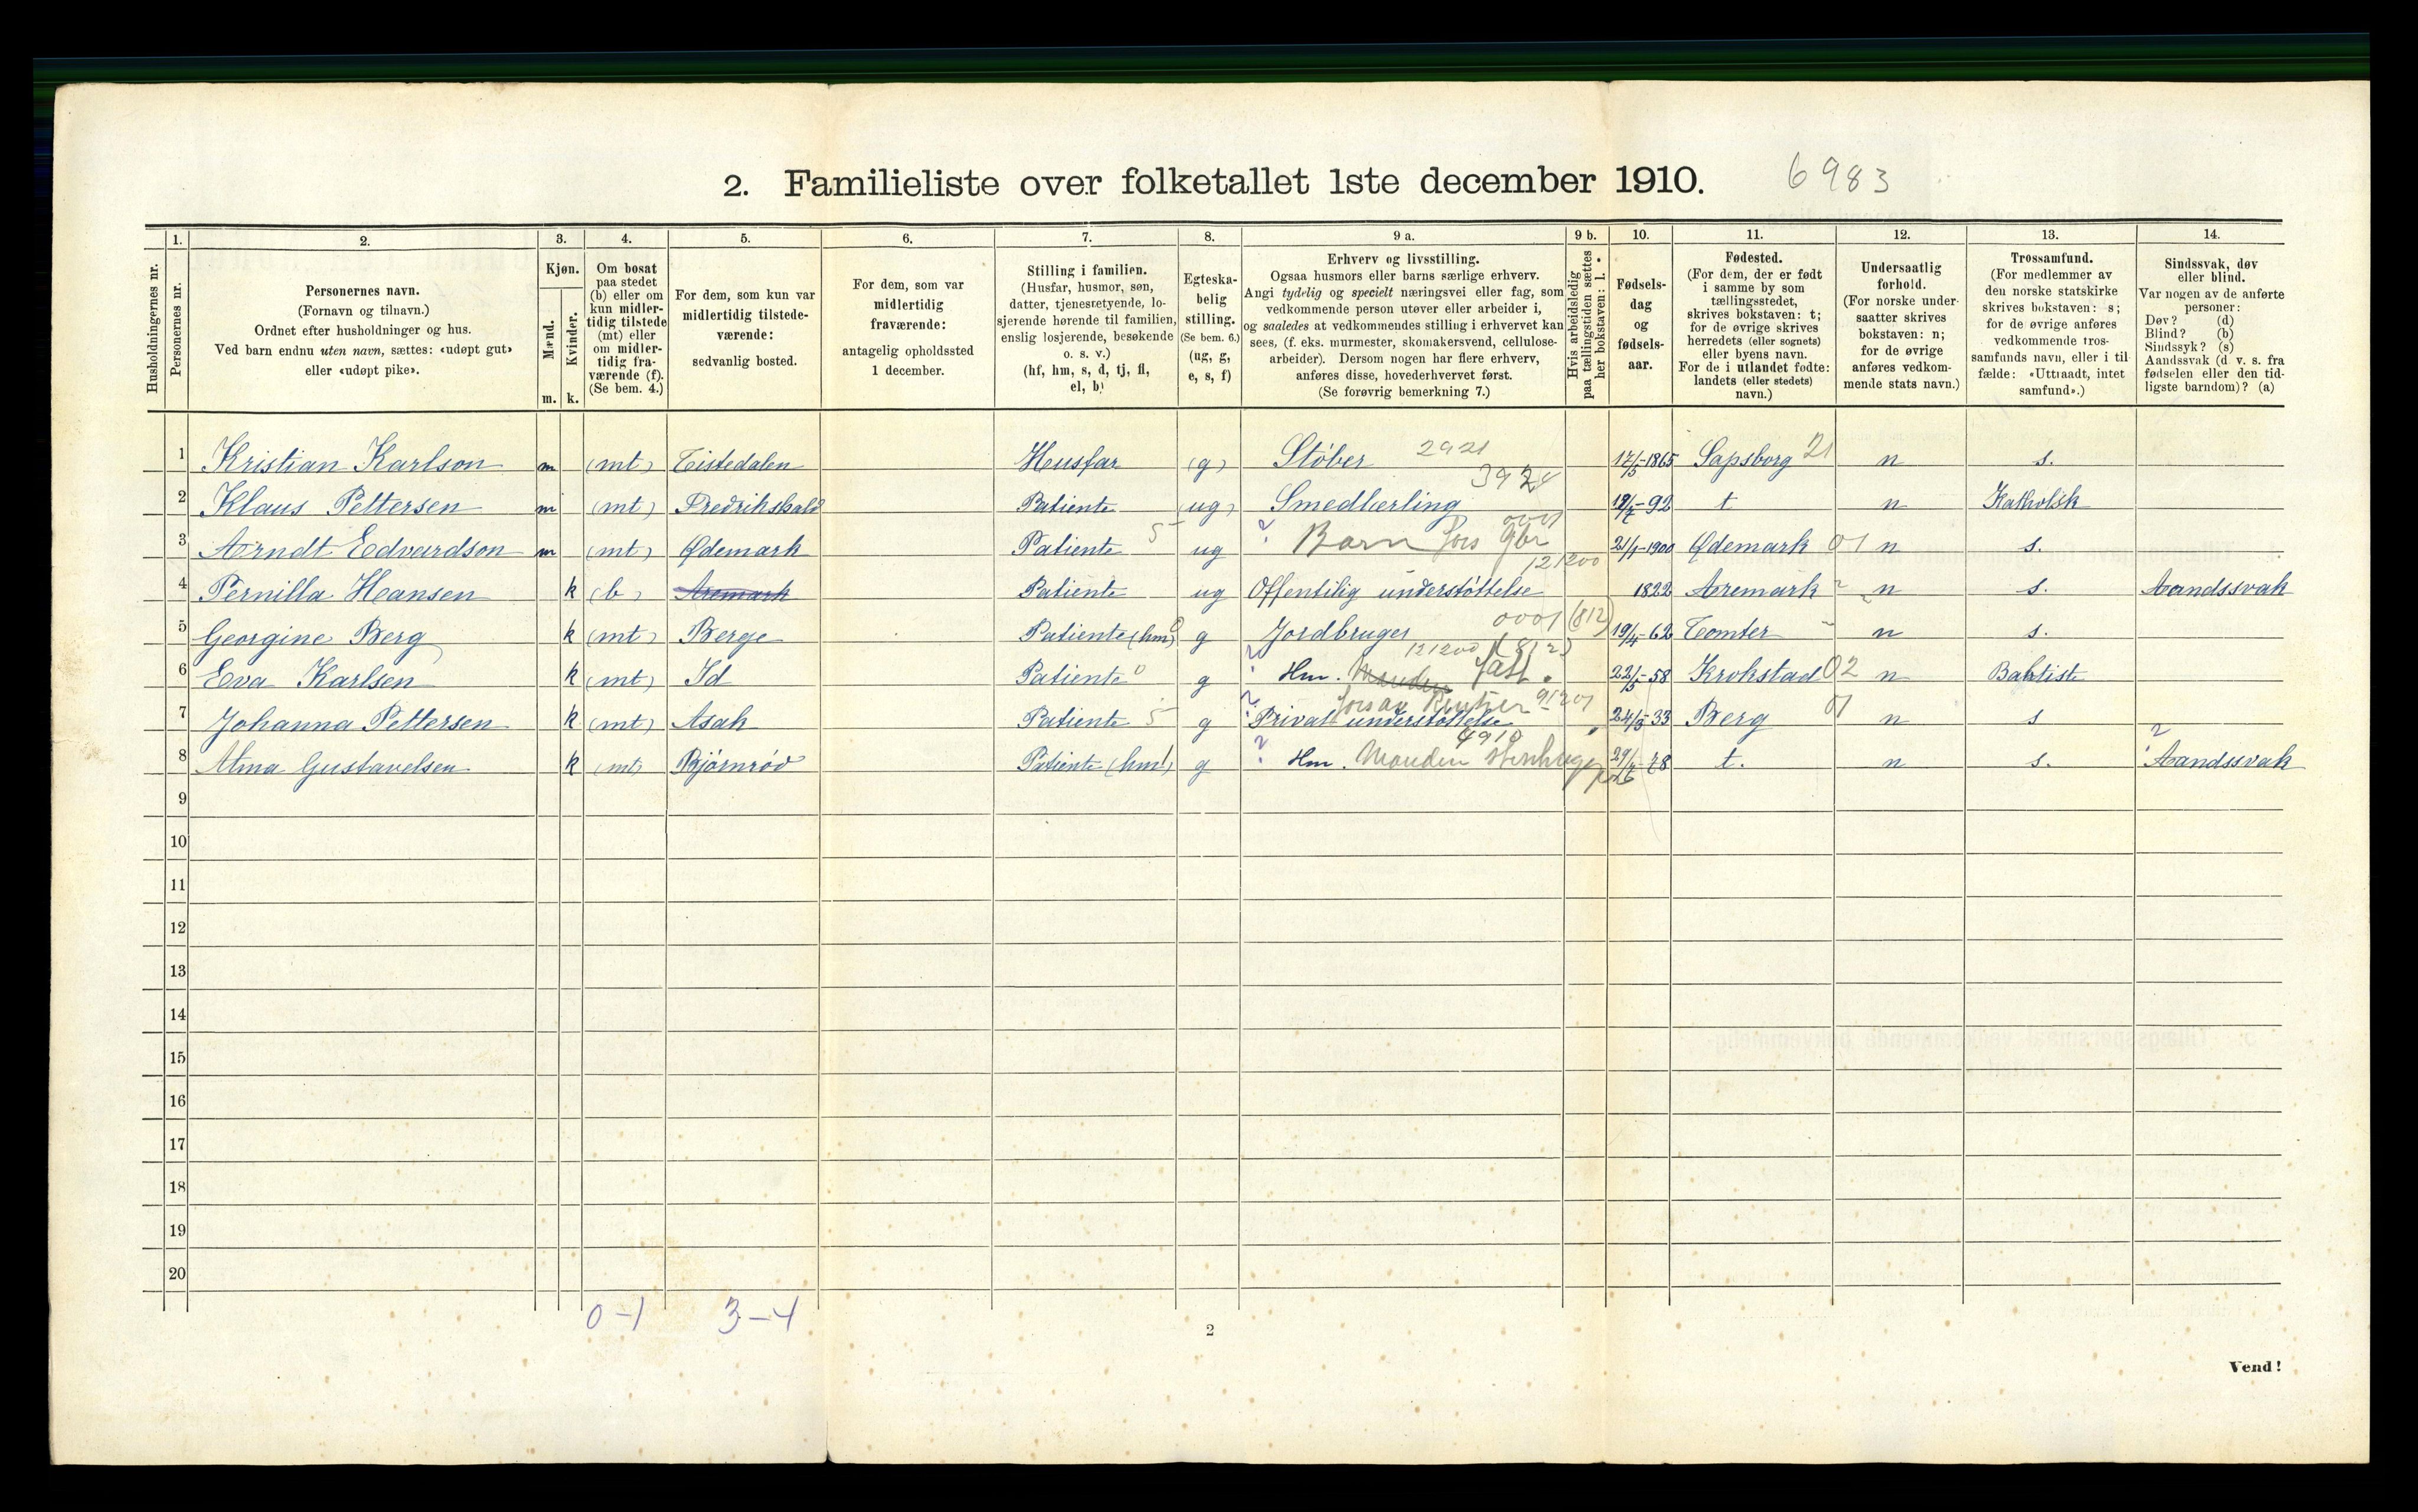 2. Familieliste over folketallet 1ste december 1910. 6983
1. 2. 3. 4. 5. 6. 7. 8. 9 a. 9 b. 10. 11. 12. 13. 14.
Husholdningernes nr.
Personernes nr.
Personernes navn.
(Fornavn og tilnavn.)
Ordnet efter husholdninger og hus.
Ved barn endnu uten navn, sættes: «udøpt gut»
eller «udøpt pike».
Kjøn.
Mænd.
Kvinder.
m. k.
Om bosat
paa stedet
(b) eller om
kun midler-
tidig tilstede
(mt) eller
om midler-
tidig fra-
værende (f).
(Se bem. 4.)
For dem, som kun var
midlertidig tilstede-
værende:
sedvanlig bosted.
For dem, som var
midlertidig
fraværende:
antagelig opholdssted
1 december.
Stilling i familien.
(Husfar, husmor, søn,
datter, tjenestetyende, lo-
sjerende hørende til familien,
enslig losjerende, besøkende
o. s. v.)
(hf, hm, s, d, tj, fl,
el, b)
Egteska-
belig
stilling.
(Se bem. 6.)
(ug, g,
e, s, f)
Erhverv og livsstilling.
Ogsaa husmors eller barns særlige erhverv.
Angi tydelig og specielt næringsvei eller fag, som
vedkommende person utøver eller arbeider i,
og saaledes at vedkommendes stilling i erhvervet kan
sees, (f. eks. murmester, skomakersvend, cellulose-
arbeider). Dersom nogen har flere erhverv,
anføres disse, hovederhvervet først.
(Se forøvrig bemerkning 7.)
Hvis arbeidsledig
paa tællingstiden sættes
her bokstaven: l.
Fødsels-
dag
og
fødsels-
aar.
Fødested.
(For dem, der er født
i samme by som
tællingsstedet,
skrives bokstaven: t;
for de øvrige skrives
herredets (eller sognets)
eller byens navn.
For de i utlandet fødte:
landets (eller stedets)
navn.)
Undersaatlig
forhold.
(For norske under-
saatter skrives
bokstaven: n;
for de øvrige
anføres vedkom-
mende stats navn.)
Trossamfund.
(For medlemmer av
den norske statskirke
skrives bokstaven: s;
for de øvrige anføres
vedkommende tros-
samfunds navn, eller i til-
fælde: «Uttraadt, intet
samfund».)
Sindssvak, døv
eller blind.
Var nogen av de anførte
personer:
Døv? (d)
Blind? (b)
Sindssyk? (s)
Aandssvak (d. v. s. fra
fødselen eller den tid-
ligste barndom)? (a)
1 Kristian Karlson m (mt) Tistedalen Husfar (g) Støber 2921 17/5-1865 Sapsborg 21 n s.
2 Klaus Pettersen m (mt) Fredrikshald Patiente (ug) Smedlærling t n Katholsk
3 Arndt Edvardson m (mt) Ødemark Patiente 5 ug ? Barn fors gbr 21/1-1900 Ødemark 01 n s.
4 Pernilla Hansen k (b) Aremark Patiente ug Offentilig understøttelse 121200 1822 Aremark n s. Aandssvak
5 Georgine Berg k (mt) Berge Patiente (hm) g Jordbruger 0001 (812) 19/4-62 Tomter n s.
6 Eva Karlsen k (mt) Id Patiente 0 g ? Hm. Manden 121200 (812) 22/5-58 Krokstad 02 n Babtist
7 Johanna Pettersen k (mt) Asak Patiente 5 g ? Privat understøttelse 24/3-33 Berg 01 n s
8 Alma Gustavelsen k (mt) Bjørnrød Patiente (hm) g ? Hm. Manden 4910 t. n s. ? Aandssvak
9
10
11
12
13
14
15
16
17
18
19
20
0-1 3-4
2
Vend!